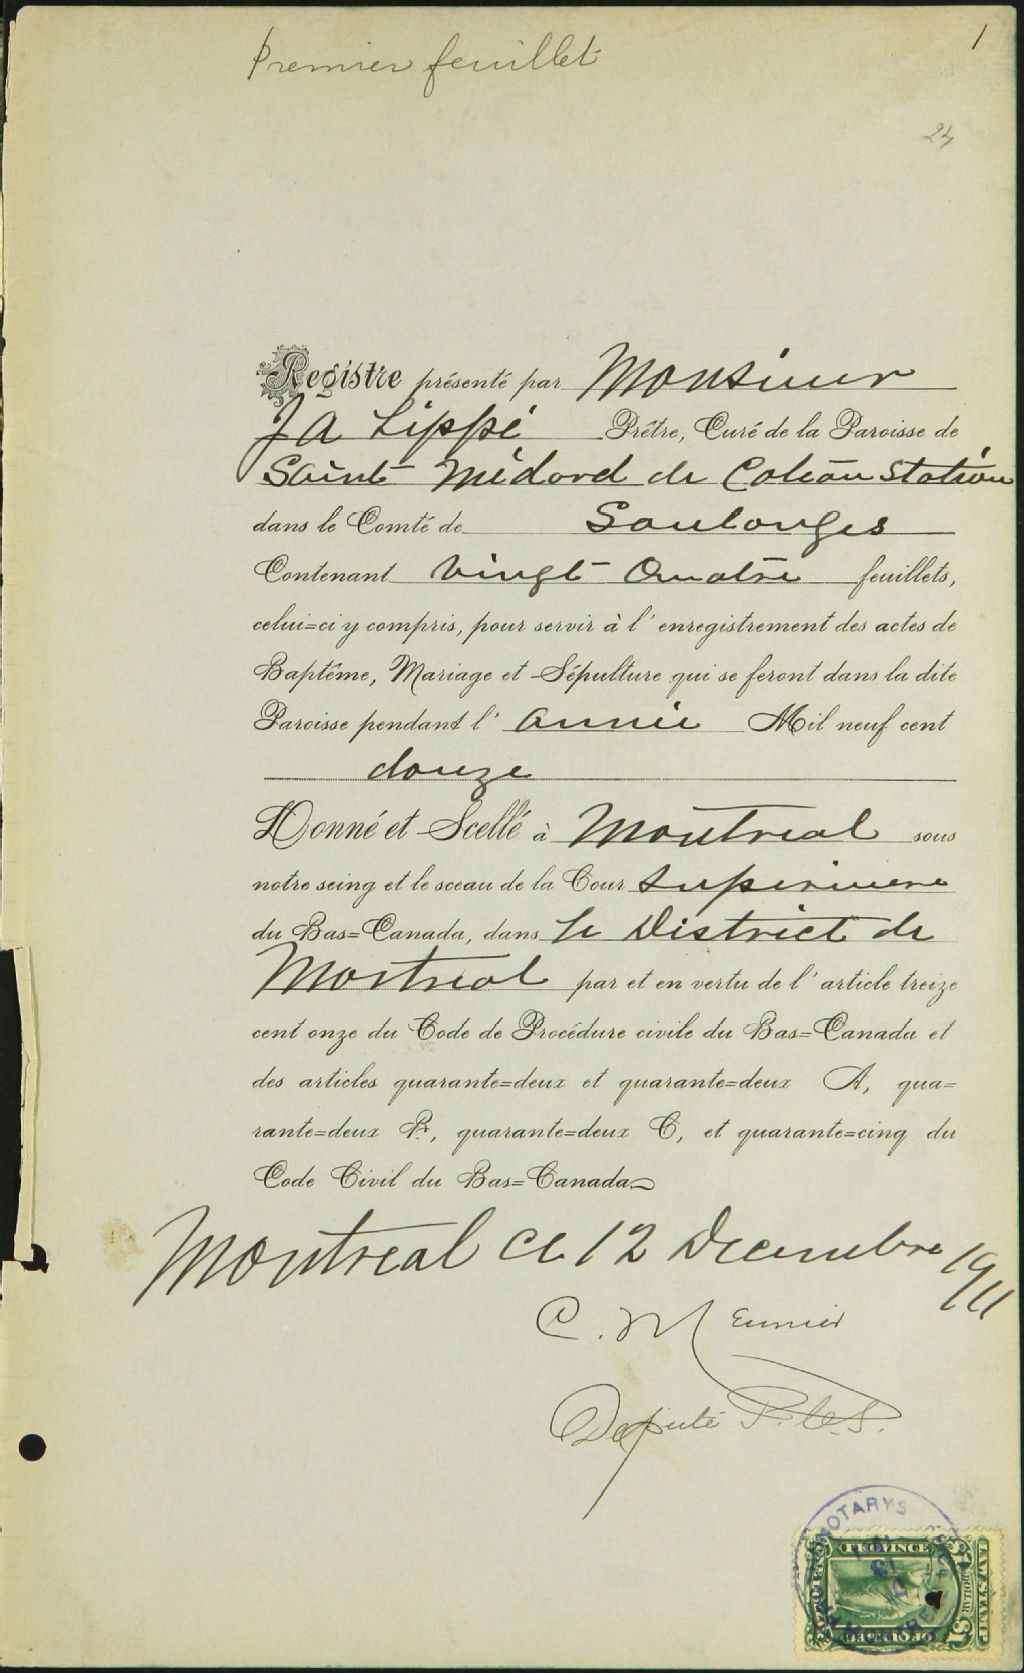 Premier feuillet
1
24
Registre présenté par Monsieur
J A Lippé Prêtre, Curé de la Paroisse de
Saint Médard de Coteau Station
dans le Comté de Soulanges
Contenant Vingt Quatre feuillets,
celui=ci y compris, pour servir à l'enregistrement des actes de
Baptême, Mariage et Sépulture qui se feront dans la dite
Paroisse pendant l'année Mil neuf cent
douze
Donné et Scellé à Montreal sous
notre seing et le sceau de la Cour Superieure
du Bas=Canada, dans le District de
Montreal par et en vertu de l'article treize
cent onze du Code de Procédure civile du Bas=Canada et
des articles quarante=deux et quarante=deux A, qua=
rante=deux B, quarante=deux C, et quarante=cinq du
Code Civil du Bas=Canada
Montreal ce 12 Decembre 1911
C. Meunier
Deputé P.C.S.
NOTARYS
PROVINCE
OF QUEBEC
LAW STAMP
DOLLAR